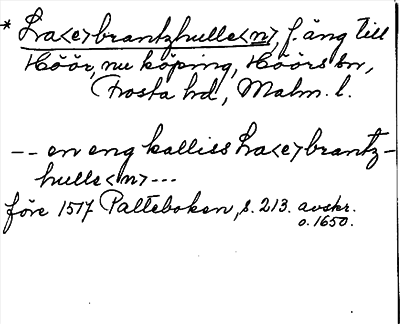 * Lra<e>brantzhulle<n>, f. äng till
Höör, nu köping, Höörs sn,
Frosta hd, Malm. l.
-- en eng kalliss Lra<e>brantz-
hulle<n> ---
före 1517 Palteboken, s. 213. avskr.
o. 1650.